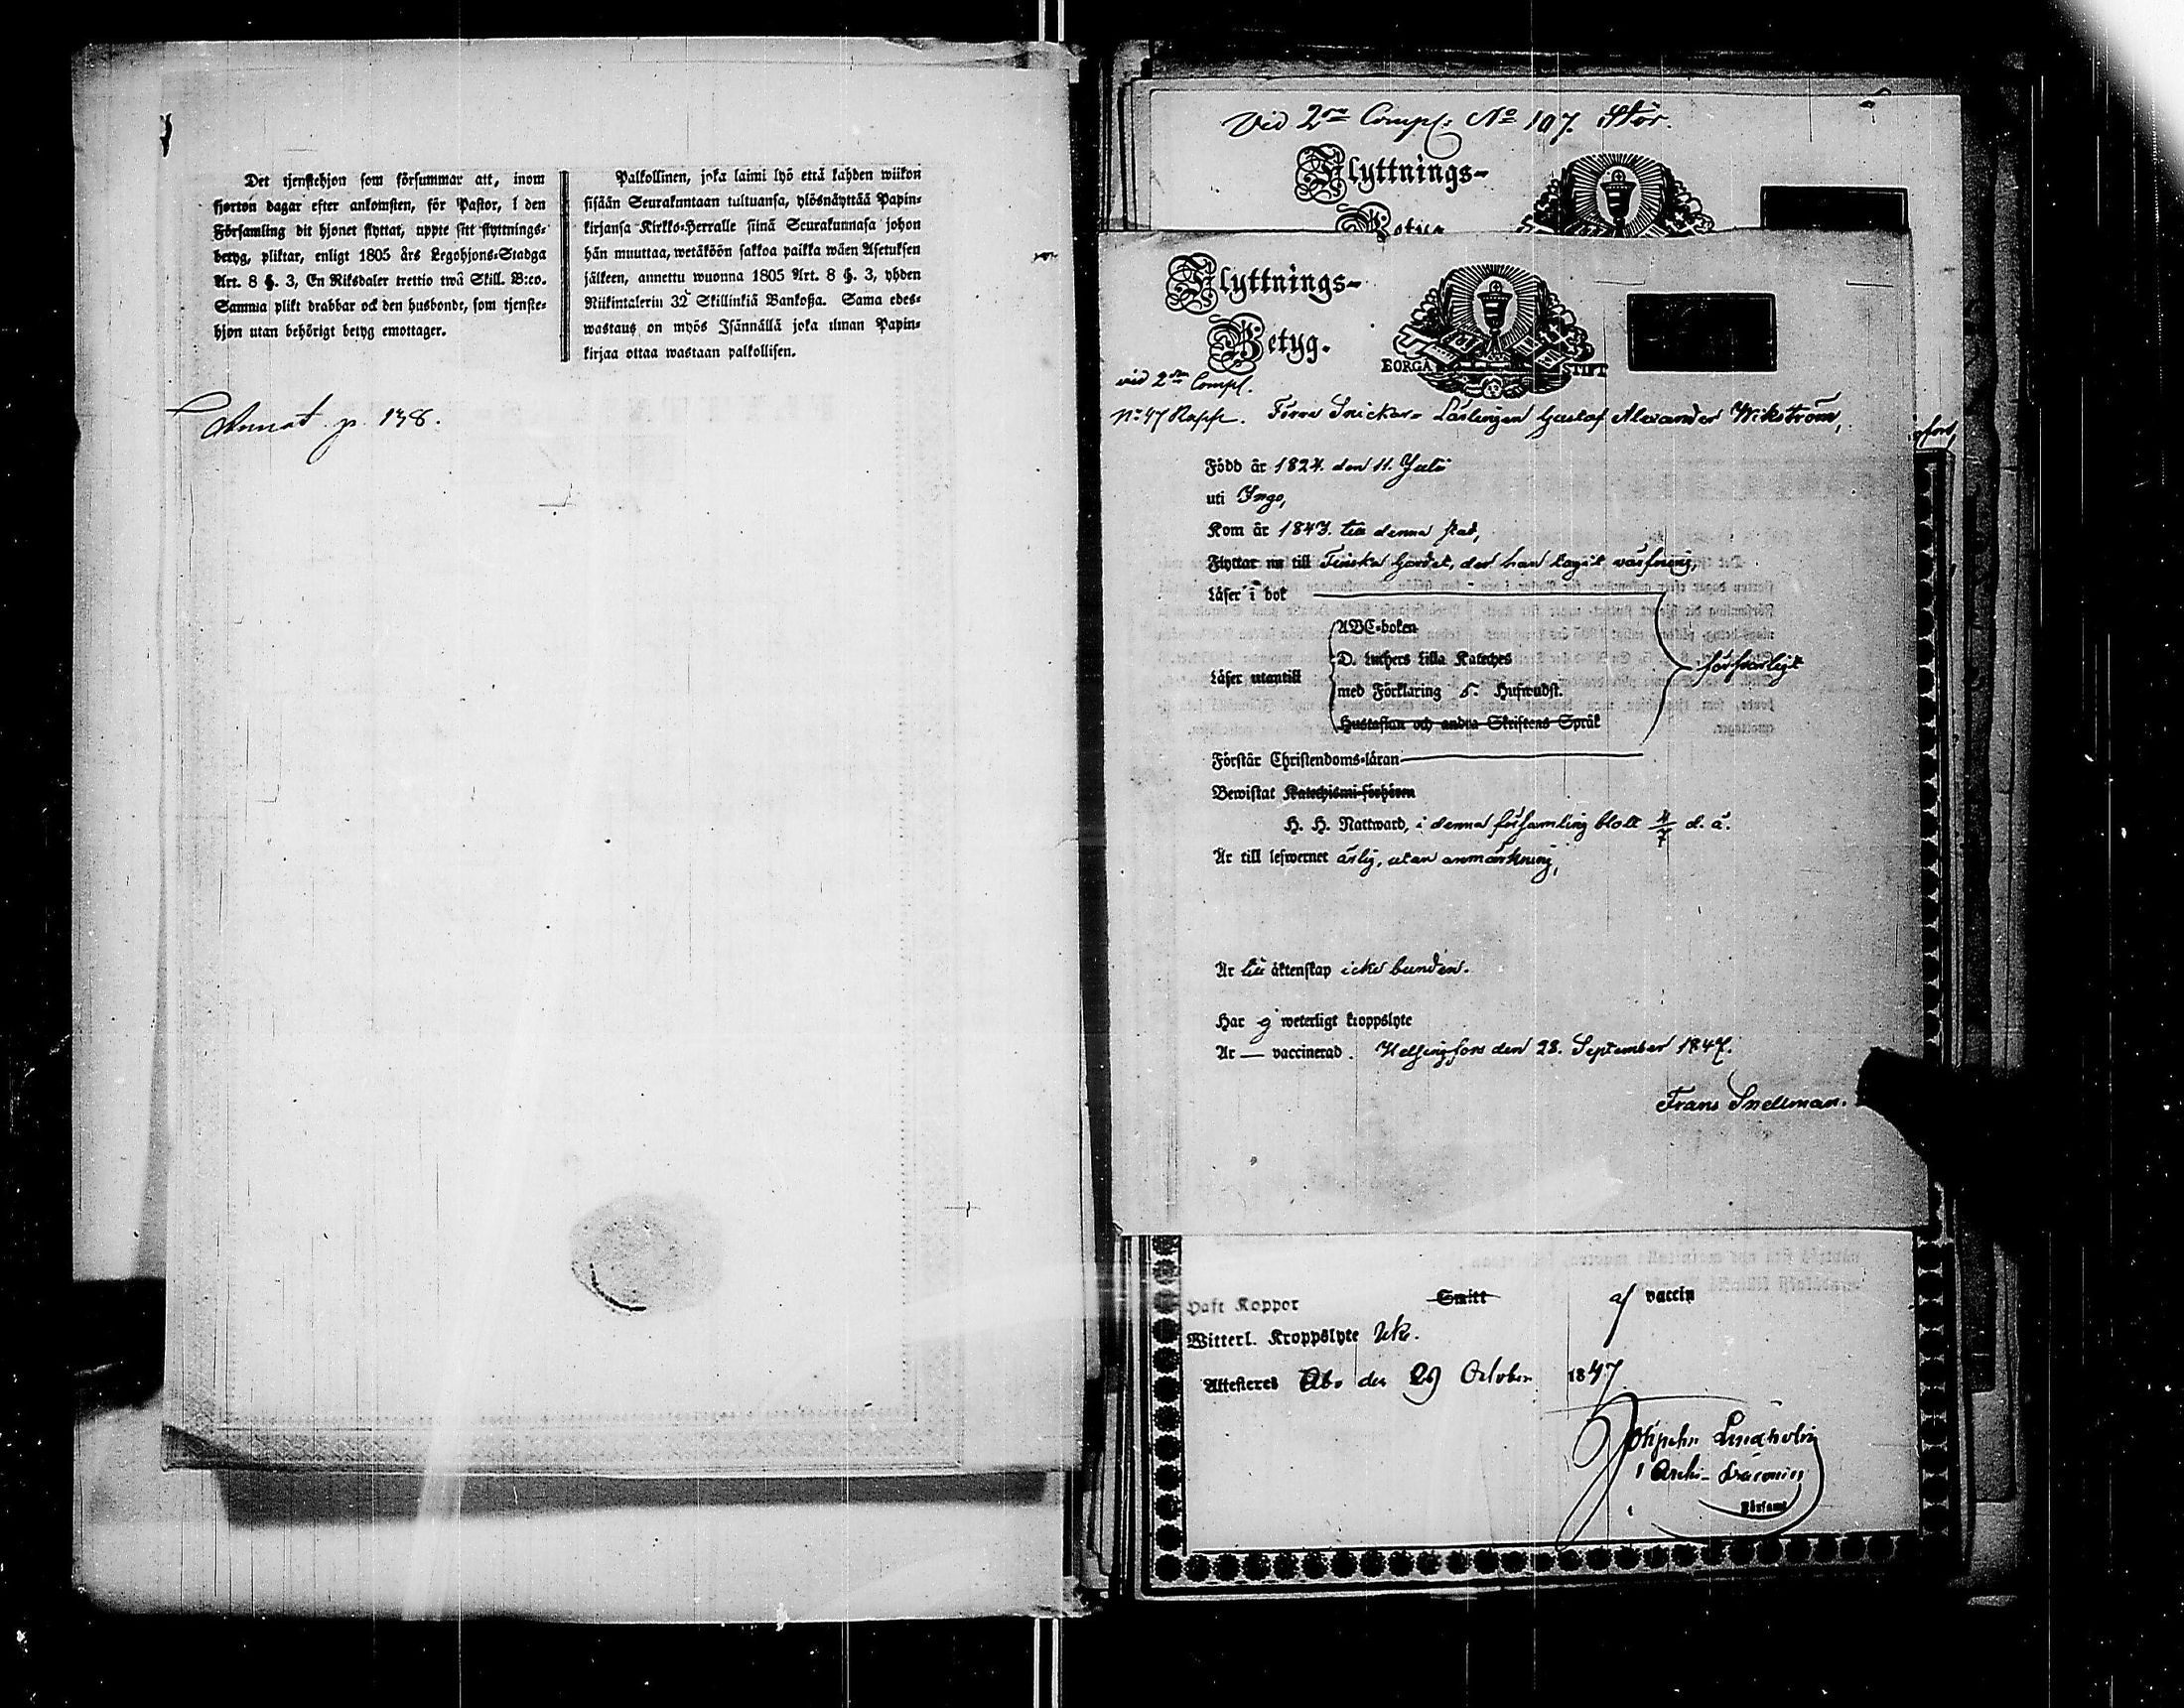 Det tjenstehjon som försummar att, inom
fjorton dagar efter ankomsten, för Pastor, i den
Församling dit hjonet flyttat, uppte sitt flyttnings-
betyg, pliktar, enligt 1805 års Legohjons-Stadga
Art. 8 §. 3, En Riksdaler trettio twå Skill. B:co.
Samma plikt drabbar ock den husbonde, som tjenste-
hjon utan behörigt betyg emottager.
Palkollinen, joka laimi lyö että kahden wiikon
sisään Seurakuntaan tultuansa, ylösnäyttää Papin-
kirjansa Kirkko-Herralle siinä Seurakunnasa johon
hän muuttaa, wetäköön sakkoa paikka wäen Asetuksen
jälkeen, annettu wuonna 1805 Art. 8 §. 3, yhden
Riikintalerin 32 Skillinkiä Bankoßa. Sama edes-
wastaus on myös Isännällä joka ilman Papin-
kirjaa ottaa wastaan palkollisen.
Annot. p. 138.
Vid 2ra Comp. No 107. Stör.
Flyttnings-
Betyg
Flyttnings-
Betyg.
BORGÅ STIFT
vid 2dra Comp.
No 47 Rapp. Förre Snickare-Lärlingen Gustaf Alexander Wikström,
Född år 1824. den 11. Julii
uti Ingo,
Kom år 1843. till denna stad,
Flyttar nu till Finska Gardet, der han tagit värfning,
Läser i bok
ABC-boken
D. Luthers Lilla Kateches
Läser utantill
med Förklaring 5. Hufwudst.
Hustaflan och andra Skriftens Språk
försvarligt
Förstår Christendoms-läran
Bewistat Katechismi-förhören
H. H. Nattward, i denna församling blott 4/7 d. å.
Är till lefwernet ärlig, utan anmärkning,
Är till äktenskap icke bunden.
Har ej weterligt kroppslyte
Är — vaccinerad. Helsingfors den 28. September 1847.
Frans Snellman.
Haft Koppor Smitt af vaccin
Witterl. Kroppslyte
Attesteres Åbo den 29 October 1847
Lindholm
Archi-
Församl